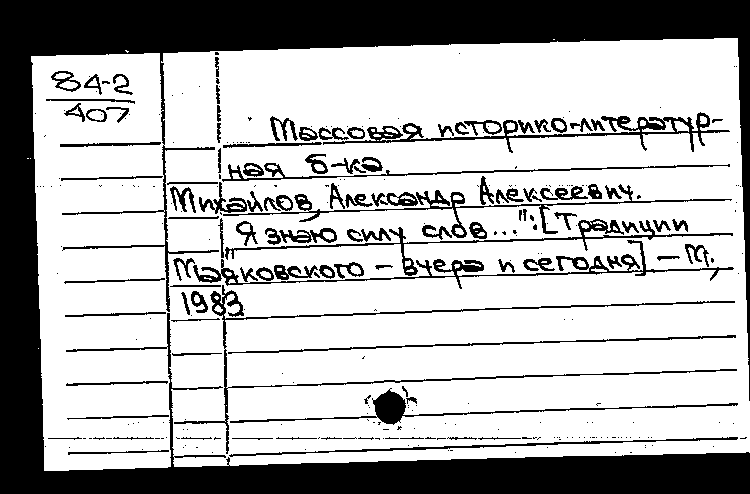 84-2
407
Массовая историко-литератур-
ная б-ка.
Михайлов, Александр Алексеевич.
"Я знаю силу слов...":[Традиции
Маяковского - вчера и сегодня] - М.,
1983